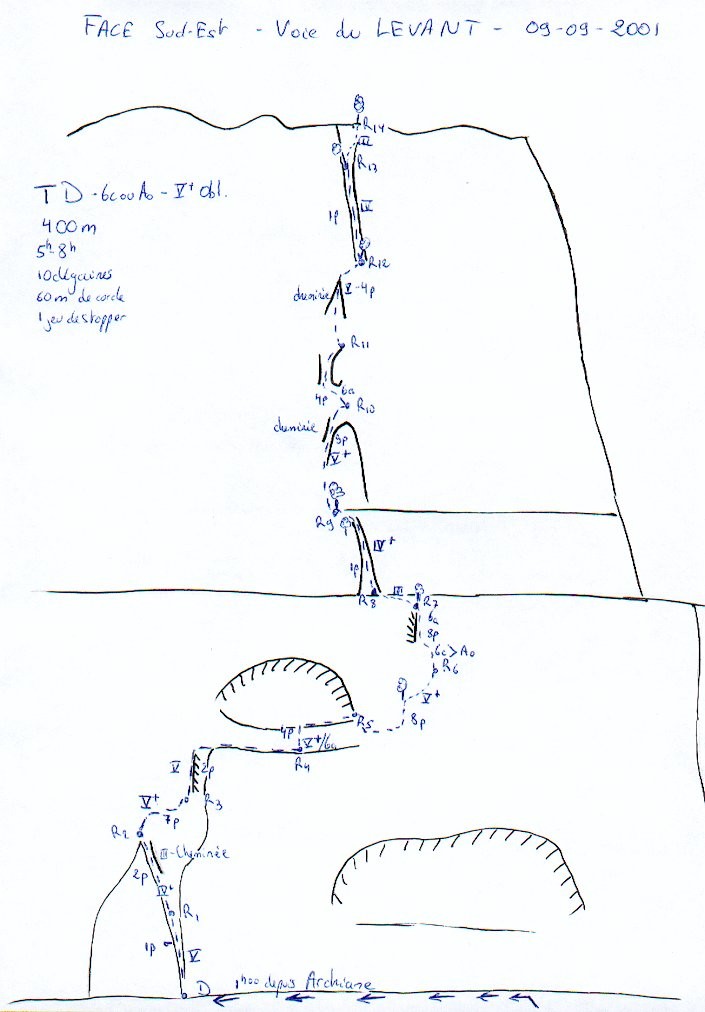 FACE Sud-Est - Voie du LEVANT - 09-09-2001
R14
III
R13
TD - 6c ou A0 - V+ obl.
400m
5h-8h
10 dégaines
60m de corde
1 jeu de stopper
1p
IV
R12
cheminée
V - 4p
R11
6a
4p
R10
cheminée
9p
V+
R9
IV+
1p
R8
III
R7
6a
8p
6c > A0
R6
V+
8p
R5
4p
V+/6a
R4
V
2p
R3
V+
7p
R2
III - Cheminée
2p
V+
R1
1p
V
D
1h00 depuis Archiane